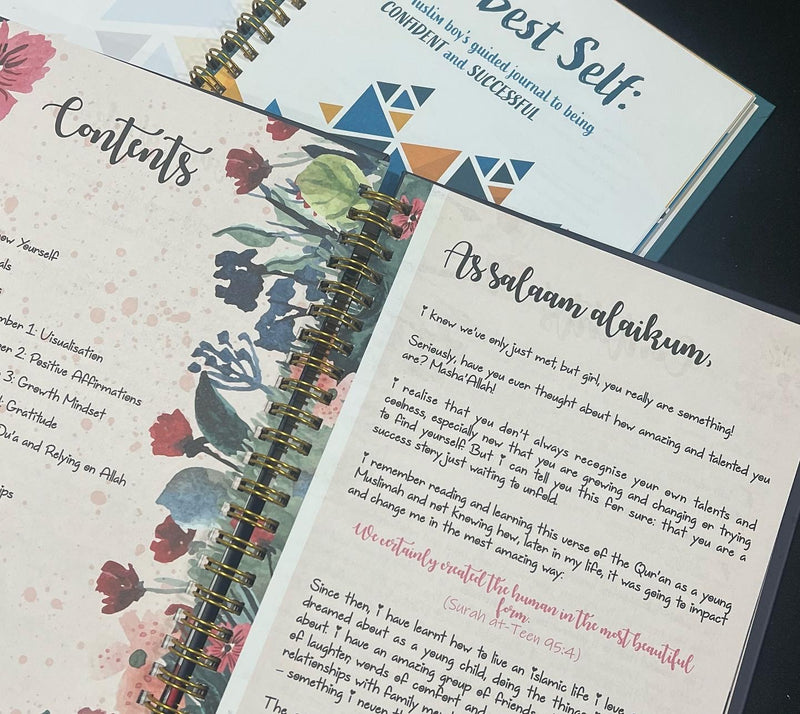 Best Self:
muslim boy's guided journal to being
CONFIDENT and SUCCESSFUL
Contents
Yourself
1: Visualisation
2: Positive Affirmations
3: Growth Mindset
Gratitude
Du'a and Relying on Allah
As salaam alaikum,
i know we've only just met, but girl, you really are something!
Seriously, have you ever thought about how amazing and talented you
are? Masha'Allah!
i realise that you don't always recognise your own talents and
coolness, especially now that you are growing and changing or trying
to find yourself. But i can tell you this for sure: that you are a
success story just waiting to unfold.
i remember reading and learning this verse of the Qur'an as a young
Muslimah and not knowing how, later in my life, it was going to impact
and change me in the most amazing way:
We certainly created the human in the most beautiful
form.
(Surah at-Teen 95:4)
Since then, i have learnt how to live an islamic life i love,
dreamed about as a young child, doing the things
about. i have an amazing group of friends
of laughter, words of comfort and
relationships with family
– something i never
The